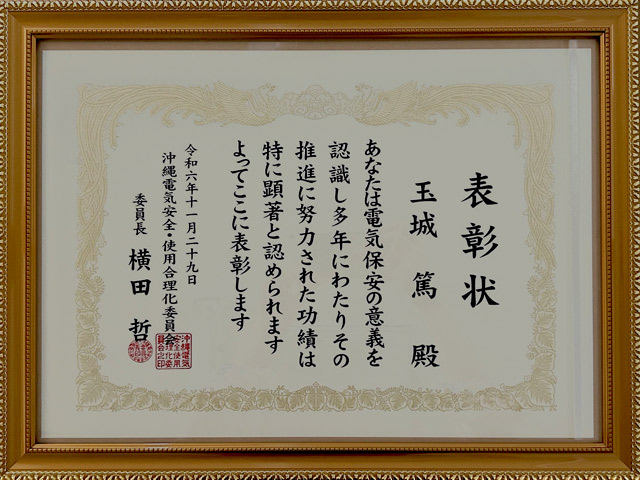 表彰状
玉城 篤 殿
あなたは電気保安の意義を
認識し多年にわたりその
推進に努力された功績は
特に顕著と認められます
よってここに表彰します
令和六年十一月二十九日
沖縄電気安全・使用合理化委員会
委員長 横田 哲
沖縄電気
安全使用
合理化委
員会之印